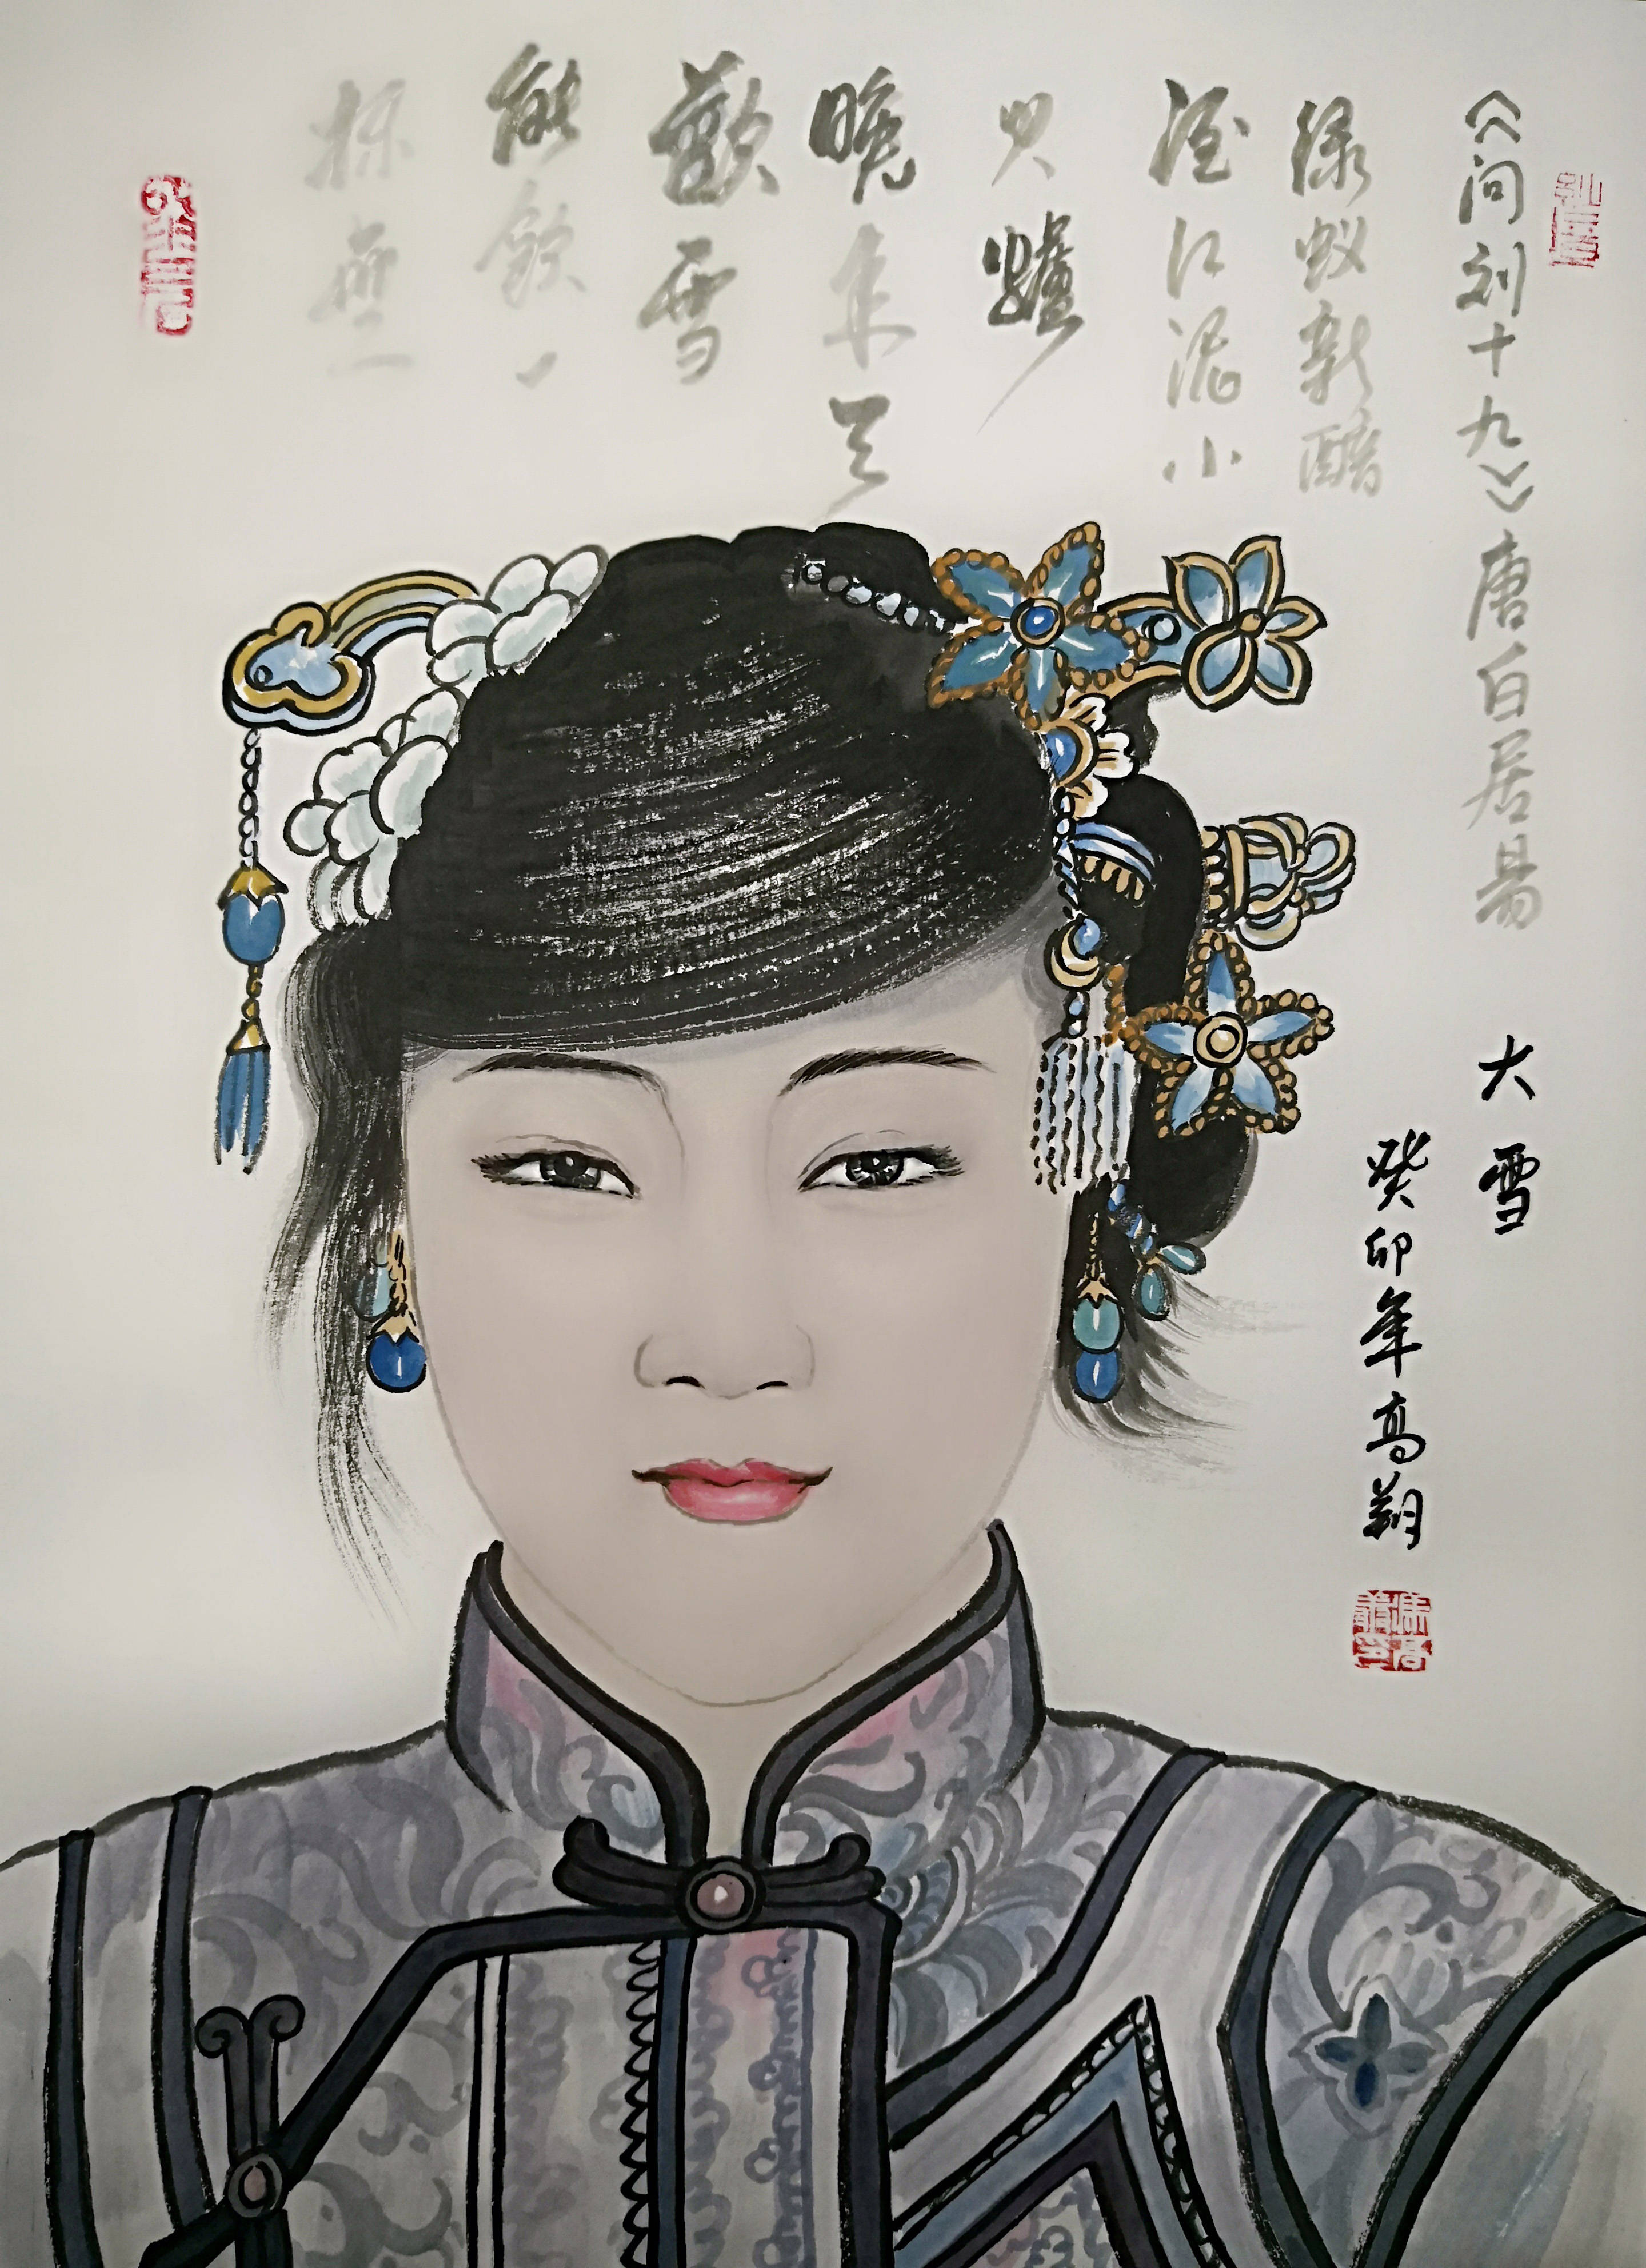 《问刘十九》唐白居易
绿蚁新醅
酒红泥小
火爐
晚来天
欲雪
能飲一
杯無
大雪
癸卯年高翔